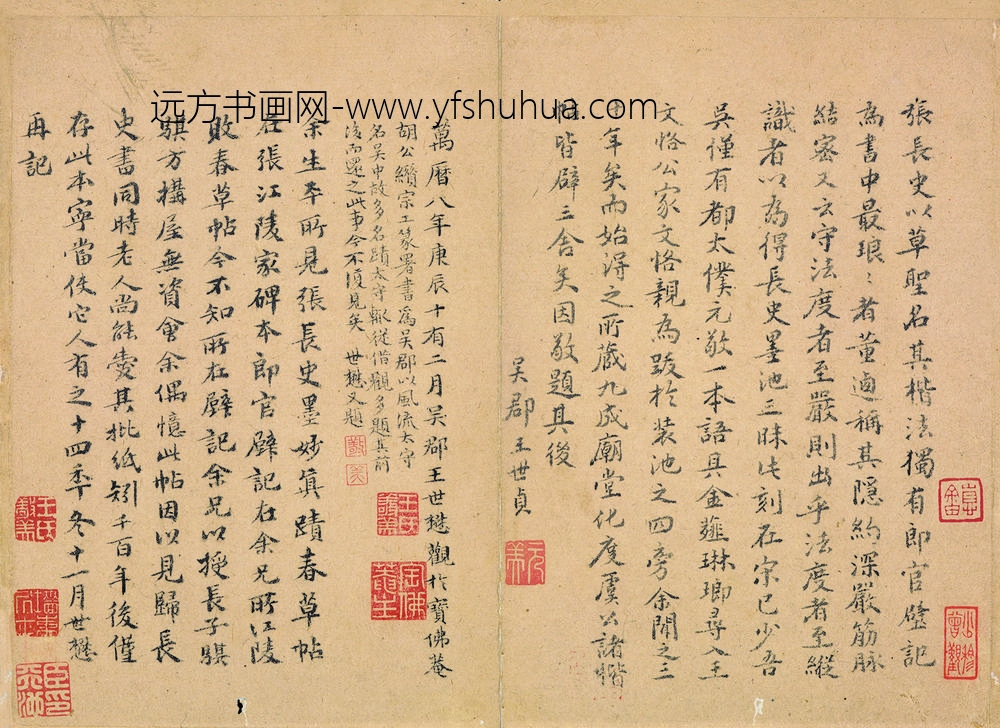 張長史以草聖名其楷法獨有郎官壁記
為書中最琅〻者董逌稱其隱約深嚴筋脉
結密又云守法度者至嚴則出乎法度者至縱
識者以為得長史墨池三昧此刻在宋已少吾
吳僅有都太僕元敬一本語具金薤琳瑯尋入王
文恪公家文恪親為跋於裝池之四旁余聞之三
年矣而始得之所藏九成廟堂化度虞公諸楷
帖皆辟三舍矣因敬題其後
吳郡王世貞
萬曆八年庚辰十有二月吳郡王世懋觀於寶佛菴
胡公纘宗工篆署書為吳郡以風流太守
名吳中故多名蹟太守輒從借觀多題其前
後而還之此事今不復見矣 世懋又題
余生平所見張長史墨妙真蹟春草帖
石張江陵家碑本郎官壁記在余兄所江陵
敗春草帖今不知所在壁記余兄以授長子騏
騏方構屋無資會余偶憶此帖因以見歸長
史書同時老人尚能愛其批紙矧千百年後僅
存此本寧當佚它人有之十四年冬十一月世懋
再記
远方书画网-www.yfshuhua.com